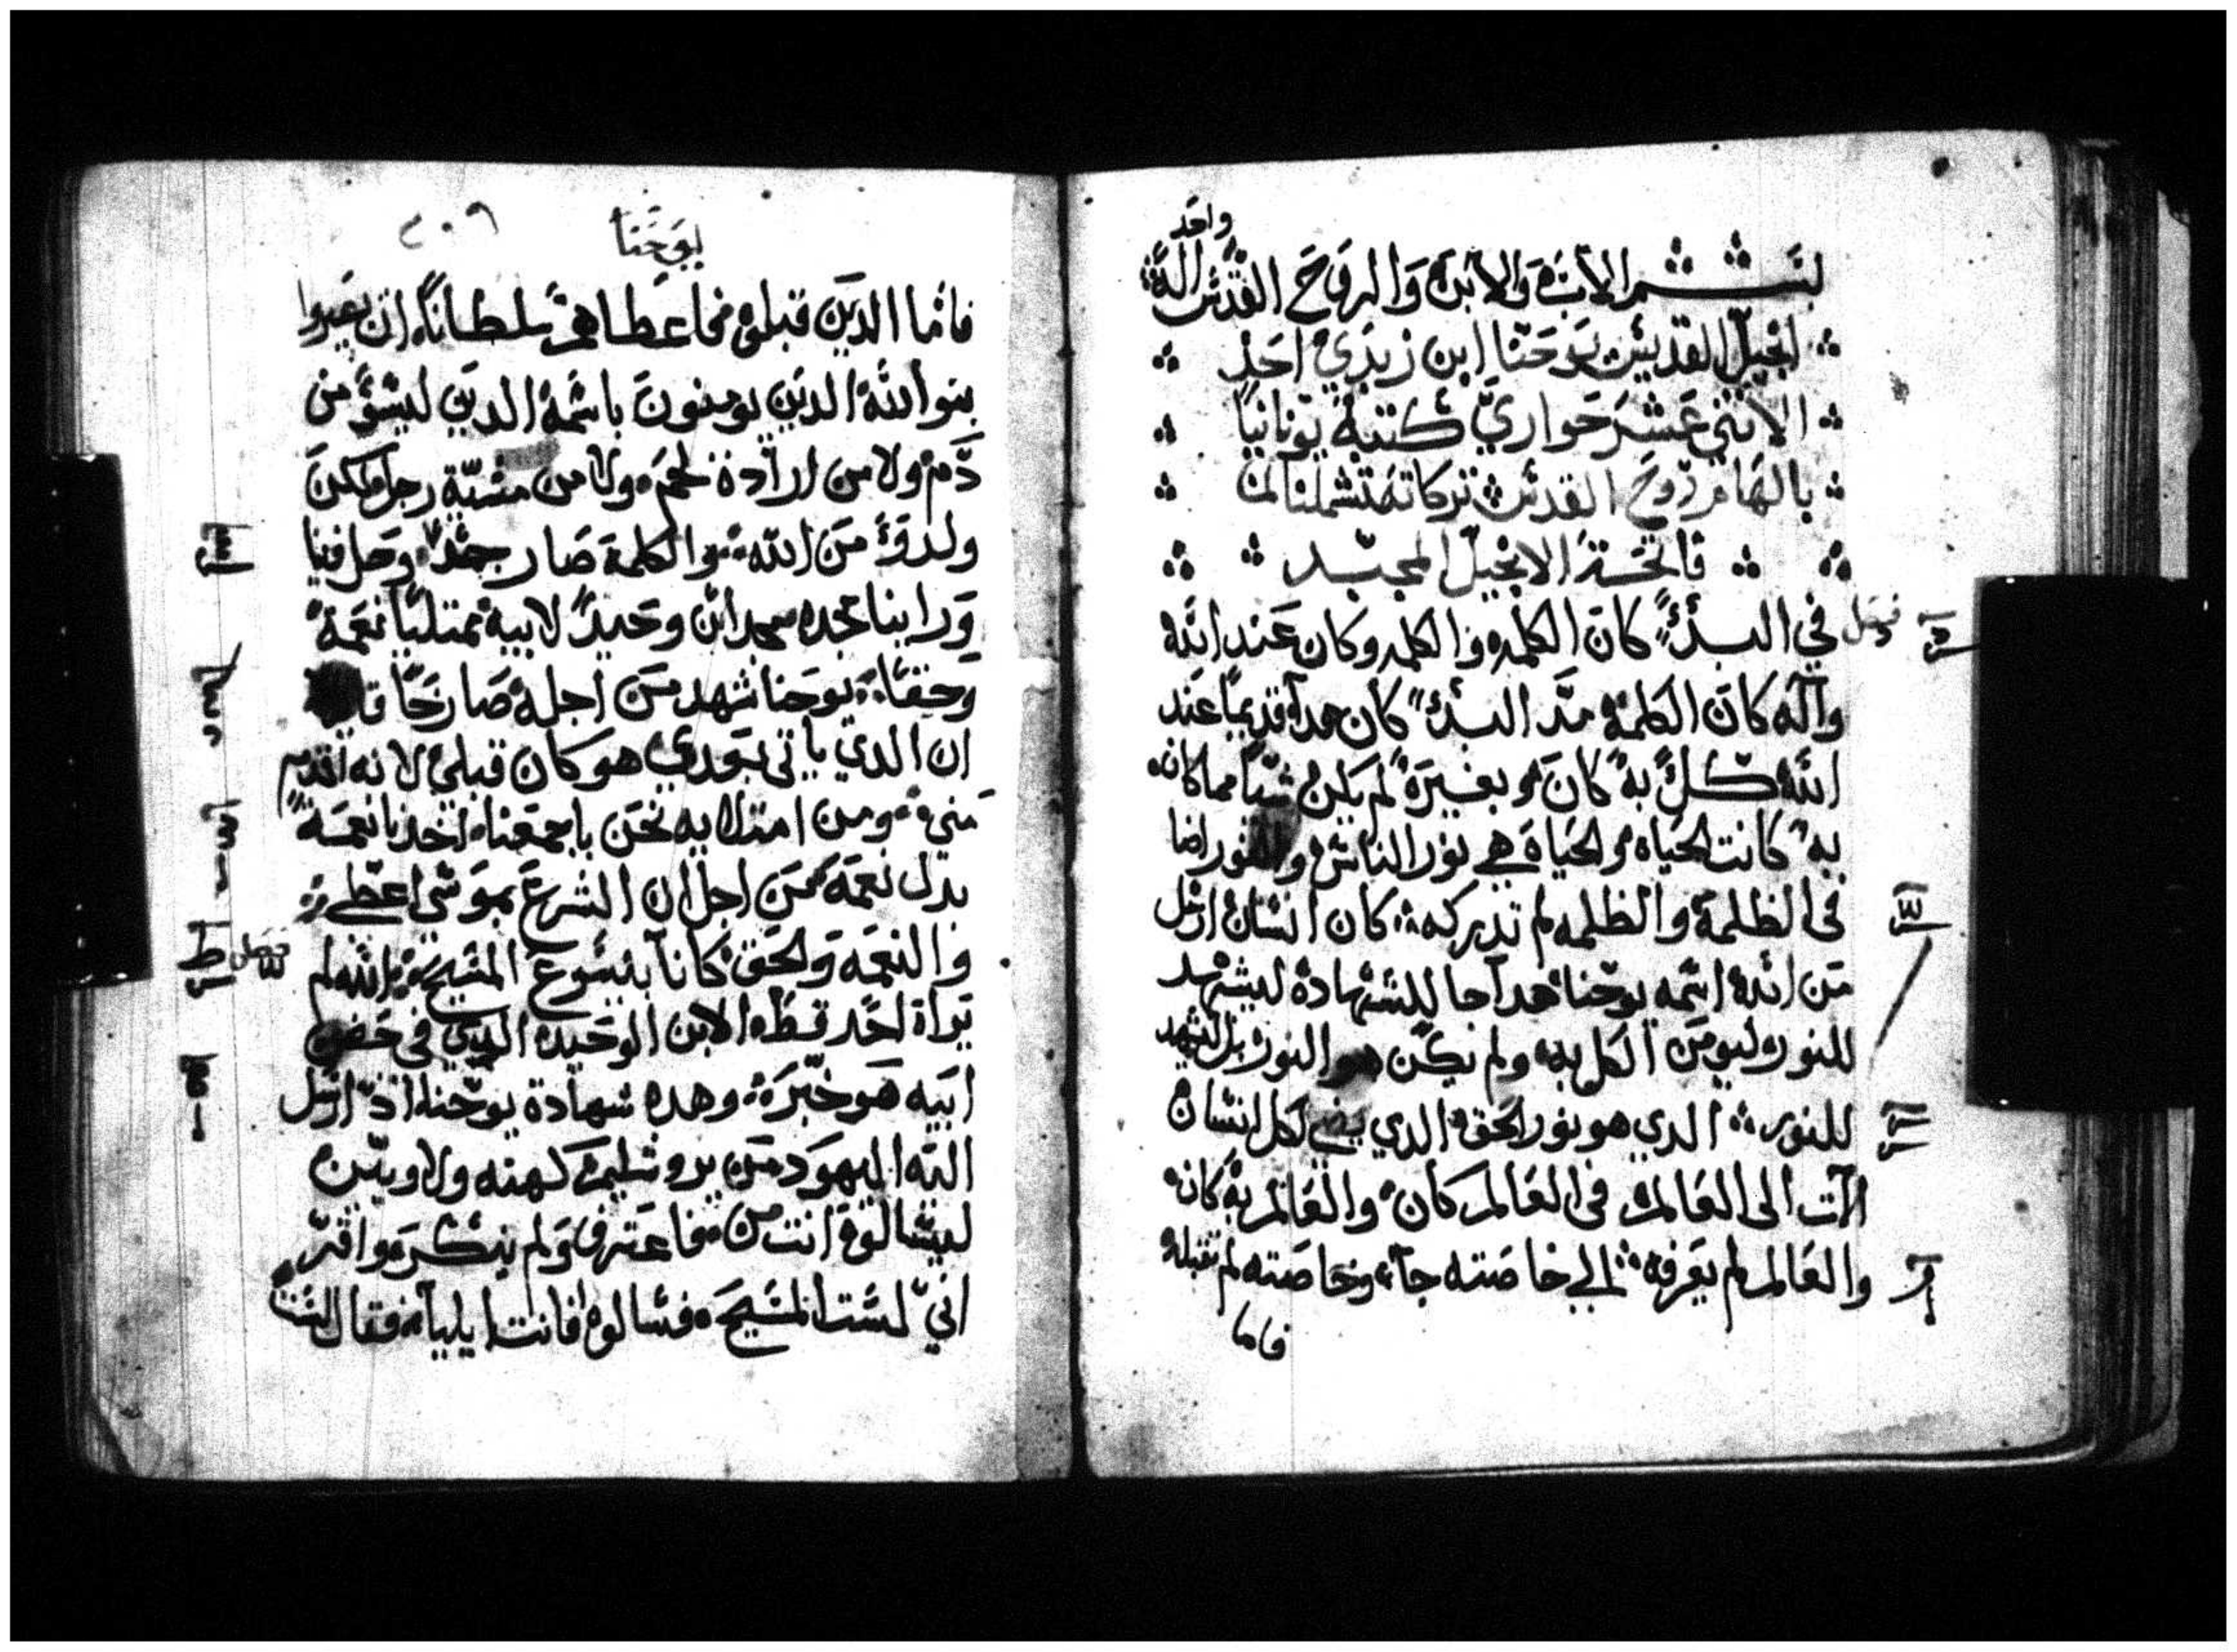 واحد
بسم الاب والابن والروح القدس اله
انجيل القديس يوحنا ابن زبدي احد
الاتني عشر حواري كتبه يونانيا
بالهام روح القدس بركاته تشملنا امن
فاتحة الانجيل المجيد
فصل في البدء كان الكلمه والكلمه وكان عند الله
واله كان الكلمة مند البدء كان هدا قديما عند
الله كل به كان وبغيره لم يكن شيا مما كان
به كانت الحياه والحياة هي نور الناس والنور اضا
في الظلمة والظلمه لم تدركه كان انسان ارسل
من الله اسمه يوحنا هدا جا للشهادة ليشهد
للنور ليومن الكل به ولم يكن هو النور بل ليشهد
للنور الدي هو نور الحق الدي يضي لكل انسان
الات الى العالم في العالم كان والعالم به كان
والعالم لم يعرفه الي خاصته جا وخاصته لم تقبله
فاما
يوحنا ٢٠٩
فاما الدين قبلوه فاعطاهم سلطانا ان يصيروا
بنو الله الدين يومنون باسمه الدين ليسو من
دم ولا من ارادة لحم ولا من مشية رجل لكن
ولدو من الله والكلمة صار جسد وحل فينا
وراينا مجده مجد ابن وحيد لابيه ممتليا نعمة
وحقا يوحنا شهد من اجله صارخا
ان الدي ياتي بعدي هو كان قبلي لانه اقدم
مني ومن امتلايه نحن باجمعنا اخدنا نعمة
بدل نعمة من اجل ان الشرع بموسى اعطي
والنعمة والحق كانا بيسوع المسيح الله لم فصل
يراه احد قط الابن الوحيد الدي في حضن
ابيه هو خبر وهده شهادة يوحنا اذ ارسل
اليه اليهود من يروشليم كهنه ولاويين
ليسالوه انت من فاعترف ولم ينكر واقر
اني لست المسيح فسالوه افانت ايليا فقال لست